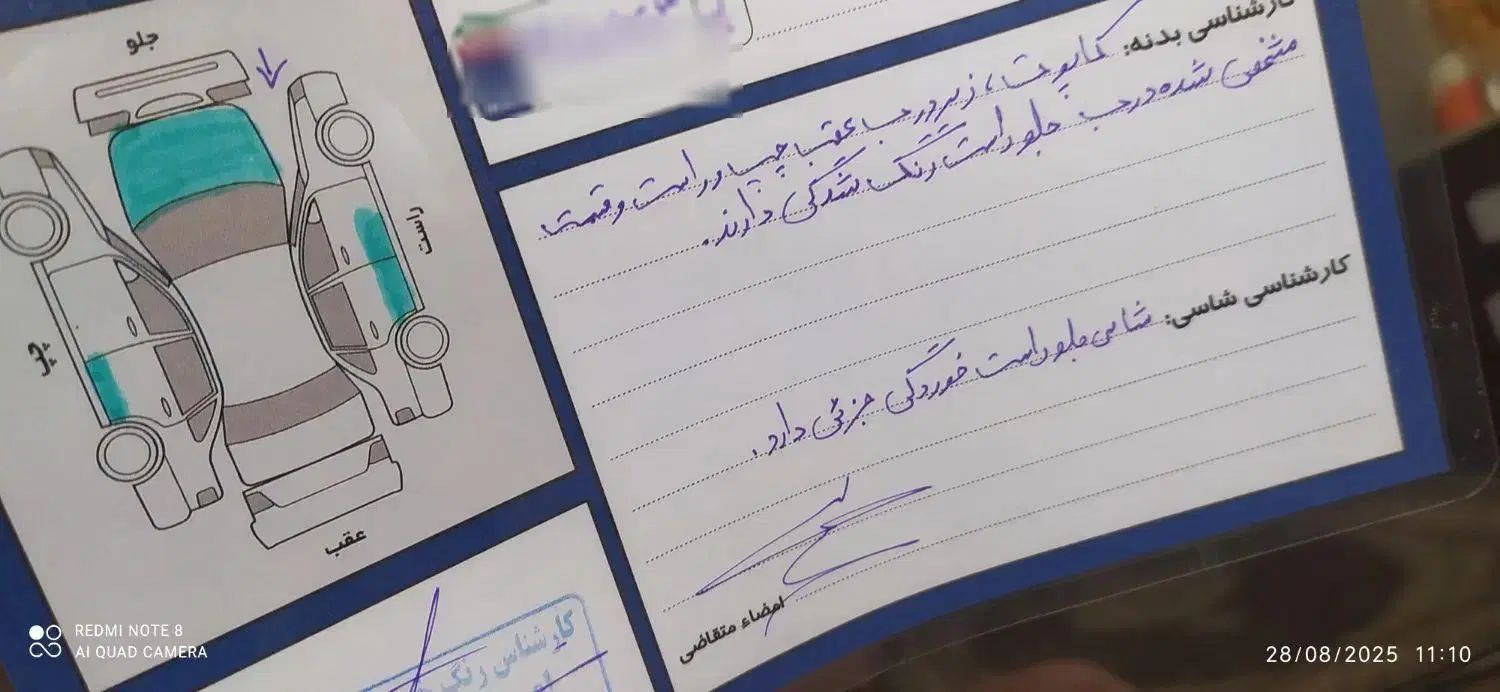 جلو
راست
چپ
عقب
کارشناسی بدنه: کاپوت، زیر درب عقب چپ و راست و قسمت
مشخص شده درب جلو راست رنگ شدگی دارند.
کارشناسی شاسی: شاسی جلو راست خوردگی جزئی دارد.
امضاء متقاضی
کارشناس رنگ
REDMI NOTE 8
AI QUAD CAMERA
28/08/2025 11:10